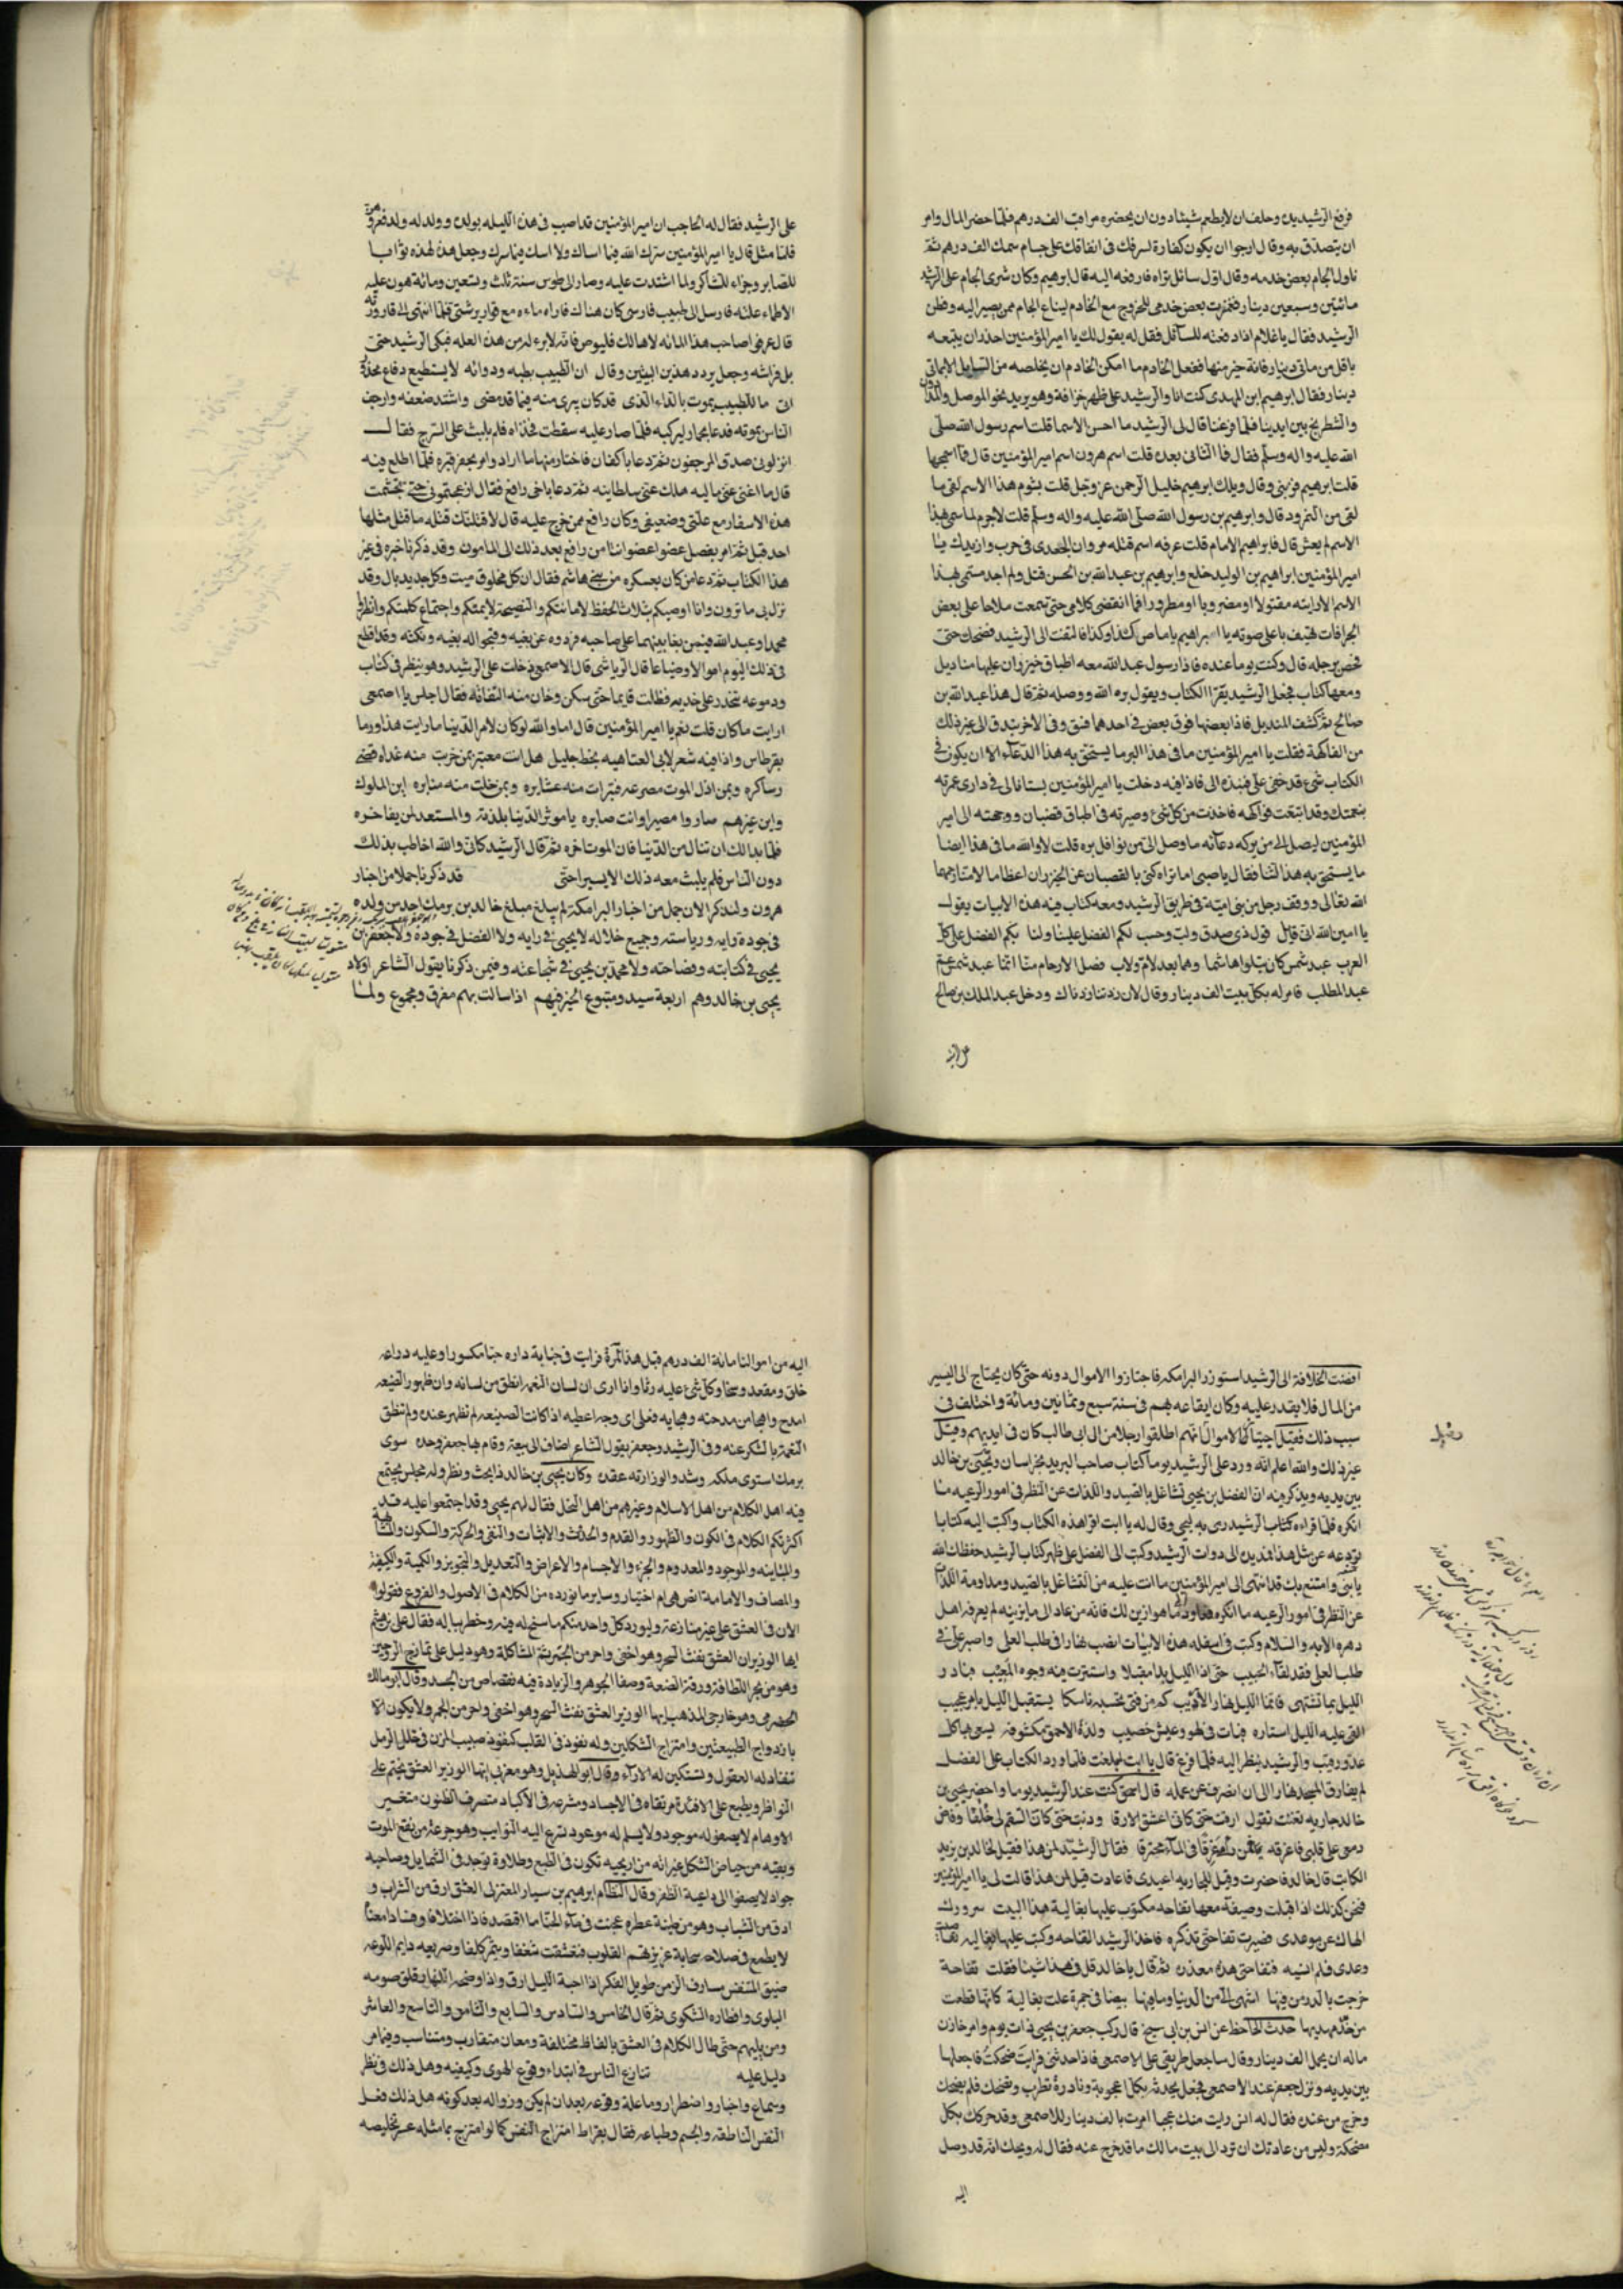 فرفع الرشيد يده وحلف ان لا يطعم شيئا دون ان يحضره مراقب الف درهم فلما حضر المال وامر
ان يتصدق به وقال ارجوا ان يكون كفارة لسرفك في انفاقك على جام سمك الف درهم ثم
ناول الجام بعض خدمه وقال اول سائل تراه فادفعه اليه قال ابرهيم وكان شرى الجام على الرشيد
مائتين وسبعين دينار فغمزت بعض خدمي للخروج مع الخادم ليبتاع الجام ممن يصير اليه وفطن
الرشيد فقال يا غلام اذا دفعته للسائل فقل له يقول لك يا امير المؤمنين احذر ان يتبعه
باقل من مائتي دينار فانه خير منها ففعل الخادم ما امكن الخادم ان يخلصه من السايل الا بمائتي
دينار فقال ابرهيم ابن المهدى كنت انا والرشيد على ظهر حراقة وهو يريد نحو الموصل والمدادون
والشطرنج بين ايدينا فلما فرغنا قال لى الرشيد ما احسن الاسما قلت اسم رسول الله صلى
الله عليه واله وسلم فقال فما الثانى بعده قلت اسم هرون اسم امير المؤمنين قال فما اسمجها
قلت ابرهيم فزبني وقال ويلك ابرهيم خليل الرحمن عز وجل قلت بشوم هذا الاسم لقى ما
لقى من النمرود قال وابرهيم بن رسول الله صلى الله عليه واله وسلم قلت لا جرم لما سمى هذا
الاسم لم يعش قال فابراهيم الامام قلت عرفه اسم قتله مروان الجعدى فى حرب وازيدك يا
امير المؤمنين ابراهيم بن الوليد خلع وابرهيم بن عبد الله بن الحسن قتل ولم اجد مسمى بهذا
الاسم الا رايته مقتولا او مضروبا او مطرودا فما انقضى كلامى حتى سمعت ملاحا على بعض
الحراقات يهتف باعلى صوته يا ابراهيم يا ماص كذا وكذا فالتفت الى الرشيد فضحك حتى
فحص برجله قال وكنت يوما عنده فاذا رسول عبد الله معه اطباق خيزران عليها مناديل
ومعها كتاب فجعل الرشيد يقرا الكتاب ويقول بره الله ووصله ثم قال هذا عبد الله بن
صالح ثم كشف المنديل فاذا بعضها فوق بعض فى احدهما فستق وفى الاخر بندق الى غير ذلك
من الفاكهة فقلت يا امير المؤمنين ما فى هذا البر ما يستحق به هذا الدعاء الا ان يكون فى
الكتاب شئ قد خفى على فنبذه الى فاذا فيه دخلت يا امير المؤمنين بستانا لى فى دارى عمرته
بنعمتك وقد اينعت فواكهه فاخذت من كل شئ وصيرته فى اطباق قضبان ووجهته الى امير
المؤمنين ليصل الى من بركه دعائه ما وصل الى من نوافل بره قلت لا والله ما فى هذا ايضا
ما يستحق به هذا الثنا فقال يا صبى اما تراه كنى بالقضبان عن الخيزران اعظاما لامنا رحمها
الله تعالى ووقف رجل من بنى امية فى طريق الرشيد ومعه كتاب فيه هذه الابيات يقول
يا امين الله انى قايل قول ذى صدق ولب وحسب لكم الفضل علينا ولنا بكم الفضل على كل
العرب عبد شمس كان يتلوا هاشما وهما بعد لام ولاب فصل الارحام منا انما عبد شمس عم
عبد المطلب فامر له بكل بيت الف دينار وقال لان زدتنا زدناك ودخل عبد الملك بن صالح
على الرشيد فقال له الحاجب ان امير المؤمنين قد اصيب فى هذه الليله بولد وولد له ولد فعز وهنه
فلما مثل قال يا امير المؤمنين سرك الله فيما اساك ولا اساك فيما سرك وجعل هذه لهذه ثوابا
للصابر وجزاء للشاكر ولما اشتدت عليه وصار الى طوس سنة ثلث وتسعين ومائة هون عليه
الاطباء علته فارسل الى طبيب فارسى كان هناك فاراه ماءه مع قوارير شتى فلما انتهى الى قارورته
قال عرفوا صاحب هذا الماء انه لا هالك فليوص فانه لا برء له من هذه العله فبكى الرشيد حتى
بل فراشه وجعل يردد هذين البيتين وقال ان الطبيب بطبه ودوائه لا يستطيع دفاع محذور
اتى ما للطبيب يموت بالداء الذى قد كان يبرى منه فيما قد مضى واشتد ضعفه وارجف
الناس بموته فدعا بحمار ليركبه فلما صار عليه سقطت فخذاه فلم يلبث على السرج فقال
انزلونى صدق المرجفون ثم دعا باكفان فاختار منها ما اراد وامر بحفر قبره فلما اطلع فيه
قال ما اغنى عنى ماليه هلك عنى سلطانيه ثم دعا باخى رافع فقال ازعجتمونى حتى تجشمت
هذه الاسفار مع علتى وضعفى وكان رافع ممن خرج عليه قال لاقتلنك قتله ما قتل مثلها
احد قبل ثم امر بفصل عضوا عضوا استامن رافع بعد ذلك الى المامون وقد ذكرنا خبره فى غير
هذا الكتاب ثم دعا من كان بعسكره من بنى هاشم فقال ان كل مخلوق ميت وكل جديد بال وقد
نزل بى ما ترون وانا اوصيكم بثلاث الحفظ لامانتكم والنصيحة لايمتكم واجتماع كلمتكم وانظروا
محمدا وعبد الله فمن بغا منهما على صاحبه فردوه عن بغيه وقبحوا له بغيه ونكثه وقد اقطع
فى ذلك اليوم اموالا وضياعا قال الرياشى قال الاصمعى دخلت على الرشيد وهو ينظر فى كتاب
ودموعه تتحدر على خديه فظلت قايما حتى سكن وحان منه التفاته فقال اجلس يا اصمعى
ارايت ما كان قلت نعم يا امير المؤمنين قال اما والله لو كان لامر الدنيا ما رايت هذا ورما
بقرطاس واذا فيه شعر لابى العتاهيه بخط جليل هل انت معتبر بمن خربت منه غداه قضى
دساكره وبمن اذل الموت مصرعه فتبرات منه عشايره وبمن خلت منه منابره اين الملوك
واين غيرهم صاروا مصيرا وانت صايره يا موثر الدنيا بلذته والمستعد لمن يفاخره
فلما بدا لك ان تنال من الدنيا فان الموت اخره ثم قال الرشيد كانى والله اخاطب بذلك
دون الناس فلم يلبث معه ذلك الا يسيرا حتى قد ذكرنا جملا من اخبار
هرون ولنذكر الان جمل من اخبار البرامكة لم يبلغ مبلغ خالد بن برمك احد من ولده
فى جودة رايه ورياسته وجميع خلاله لا يحيى فى رايه ولا الفضل فى جوده ولا جعفر بن
يحيى فى كتابته وفصاحته ولا محمد بن يحيى فى شجاعته وفيمن ذكرنا يقول الشاعر اولاد
يحيى بن خالد وهم اربعة سيد ومتبوع الخير فيهم اذا سالت بهم مفرق ومجموع ولما
افضت الخلافة الى الرشيد استوزر البرامكه فاحتازوا الاموال دونه حتى كان يحتاج الى اليسير
من المال فلا يقدر عليه وكان ايقاعه بهم فى سنة سبع وثمانين ومائة واختلف فى
سبب ذلك فقيل احتياز الاموال وانهم اطلقوا رجلا من ال ابى طالب كان فى ايديهم وقيل
غير ذلك والله اعلم انه ورد على الرشيد يوما كتاب صاحب البريد بخراسان ويحيى بن خالد
بين يديه ويذكر فيه ان الفضل بن يحيى تشاغل بالصيد واللذات عن النظر فى امور الرعيه ما
انكره فلما قراه كتاب الرشيد رمى به ليحيى وقال له يا ابت اقرا هذه الكتاب واكتب اليه كتابا
تردعه عن مثل هذا فمد يده الى دوات الرشيد وكتب الى الفضل على ظهر كتاب الرشيد حفظك الله
يا بنى وامتع بك قد انتهى الى امير المؤمنين ما انت عليه من التشاغل بالصيد ومداومة اللذات
عن النظر فى امور الرعيه ما انكره فعاود ما هو ازين لك فانه من عاد الى ما يزينه لم يعرفه اهل
دهره الا به والسلام وكتب فى اسفله هذه الابيات انصب نهارا فى طلب العلى واصبر على فى
طلب العلى فقد لقاء الحبيب حتى اذا الليل بدا مقبلا واستترت فيه وجوه العيب فبادر
الليل بما تشتهى فانما الليل نهار الاديب كم من فتى تحسبه ناسكا يستقبل الليل بامر عجيب
القى عليه الليل استاره فبات فى لهو وعيش خصيب ولذة الاحمق مكشوفه يسعى بها كل
عدو رقيب والرشيد ينظر اليه فلما فرغ قال يا ابت ابلغت فلما ورد الكتاب على الفضل
لم يفارق المسجد نهارا الى ان انصرف عن عمله قال اسحق كنت عند الرشيد يوما واحضر يحيى بن
خالد جاريه لغنت تقول ارقت حتى كانى اعشق الارقا وذبت حتى كان السقم لى خلقا وفاض
دمعى على قلبى فاغرقه يا من راى غرقا فى الماء محترقا فقال الرشيد لمن هذا فقيل لخالد بن يزيد
الكاتب قال خالد فاحضرت وقيل للجاريه اعيدى فاعادت قيل لمن هذا قالت لى يا امير المؤمنين
فنحن كذلك اذ اقبلت وصيفة معها تفاحه مكتوب عليها بغالية هذا البيت سرورك
الهاك عن موعدى فصيرت تفاحتى تذكره فاخذ الرشيد التفاحه وكتب عليها بغاليه تقاضيت
وعدى فلم انسه فتفاحتى هذه معذره ثم قال يا خالد قل فى هذا شيئا فقلت تفاحة
خرجت بالدر من فيها اشهى الى من الدنيا وما فيها بيضا فى حمرة علت بغالية كانها قطعت
من خد مهديها حدث الجاحظ عن انس بن ابى سيح قال ركب جعفر بن يحيى ذات يوم وامر خازن
ماله ان يحمل الف دينار وقال ساجعل طريقى على الاصمعى فاذا حدثنى فرايت ضحكت فاجعلها
بين يديه ونزل جعفر عند الاصمعى فجعل يحدثه بكل اعجوبة ونادرة تطرب وتضحك فلم يضحك
وخرج من عنده فقال له انس رايت منك عجبا امرت بالف دينار للاصمعى وقد حركك بكل
مضحكة وليس من عادتك ان ترد الى بيت مالك ما قد خرج عنه فقال له ويحك انه قد وصل
اليه
اليه من اموالنا مائة الف درهم قبل هذا المرة فرايت فى خباية داره حبا مكسورا وعليه دراعه
خلق ومقعد وسخا وكل شئ عليه رثا وانا ارى ان لسان النعمه انطق من لسانه وان ظهور الصنيعه
امدح واهجا من مدحته وهجايه فعلى اى وجه اعطيه اذا كانت الصنيعه لم تظهر عنده ولم تنطق
النعمة بالشكر عنه وفى الرشيد وجعفر يقول الشاعر اضاف الى بيعة وقام بها جعفر وحده سوى
برمك استوى ملكه وشد والوزارته عقده وكان يحيى بن خالد ذا بحث ونظر وله مجلس يجتمع
فيه اهل الكلام من اهل الاسلام وغيرهم من اهل النحل فقال لهم يحيى وقد اجتمعوا عليه قد
اكثرتم الكلام فى الكون والظهور والقدم والحدث والاثبات والنفى والحركة والسكون والمماسة
والمباينه والموجود والمعدوم والجزء والاجسام والاعراض والتعديل والتجويز والكمية والكيفية
والمضاف والامامة انص هى ام اختيار وساير ما نورده من الكلام فى الاصول والفروع فقولوا
الان فى العشق على غير منازعة وليورد كل واحد منكم ما سنح له فيه وخطر بباله فقال على بن هيثم
ايها الوزير ان العشق ينفث السحر وهو اخفى واحر من الجمر ثمرة المشاكلة وهو دليل على تمازج الروحين
وهو من بحر اللطافة ورقة الصنعة وصفا الجوهر والزيادة فيه نقصاص من الجسد وقال ابو مالك
الحضرمى وهو خارجى المذهب ايها الوزير العشق نفث السحر وهو اخفى واحر من الجمر ولا يكون الا
بازدواج الطبيعتين وامتزاج الشكلين وله نفوذ فى القلب كنفوذ صبيب المزن فى خلل الرمل
تنقاد له العقول وتستكين له الآراء وقال ابو الهذيل وهو معزلى ايها الوزير العشق يختم على
النواظر ويطبع على الافئدة مرتقاه فى الاجساد ومشرعه فى الاكباد متصرف الظنون متغير
الاوهام لا يصفو له موجود ولا يسلم له موعود تسرع اليه النوايب وهو جرعة من نقع الموت
وبقيه من حياض الثكل غير انه من اريحيه تكون فى الطبع وطلاوة توجد فى الشمايل وصاحبه
جواد لا يصغوا الى داعية الظفر وقال النظام ابرهيم بن سيار المعتزلى العشق ارق من الشراب و
ادق من الشباب وهو من طينة عطره عجنت فى ماء الحياء ما اقتصد فاذا اختلافا وفسادا معنا
لا يطمع فى صلاحه سحابة غزيرة تهم القلوب فتعشقت شغفا ويثمر كلفا وصريعه دايم اللوعه
ضيق المتنفس مسارف الزمن طويل الفكر اذا اجنة الليل ارق واذا اوضحه النهار قلق صومه
البلوى وافطاره الشكوى ثم قال الخامس والسادس والسابع والثامن والتاسع والعاشر
ومن يليهم حتى طال الكلام فى العشق بالفاظ مختلفة ومعان متقارب ومتناسب وفيما مر
دليل عليه تنازع الناس فى ابتداء وقوع الهوى وكيفيه وهل ذلك فى نظر
وسماع واخبار واضطرار وما علة وقوعه بعد ان لم يكن وزواله بعد كونه هل ذلك فعل
النفس الناطقه والجسم وطباعه فقال بقراط امتزاج النفس كما لو امتزج بما مثله عسر تخليصه